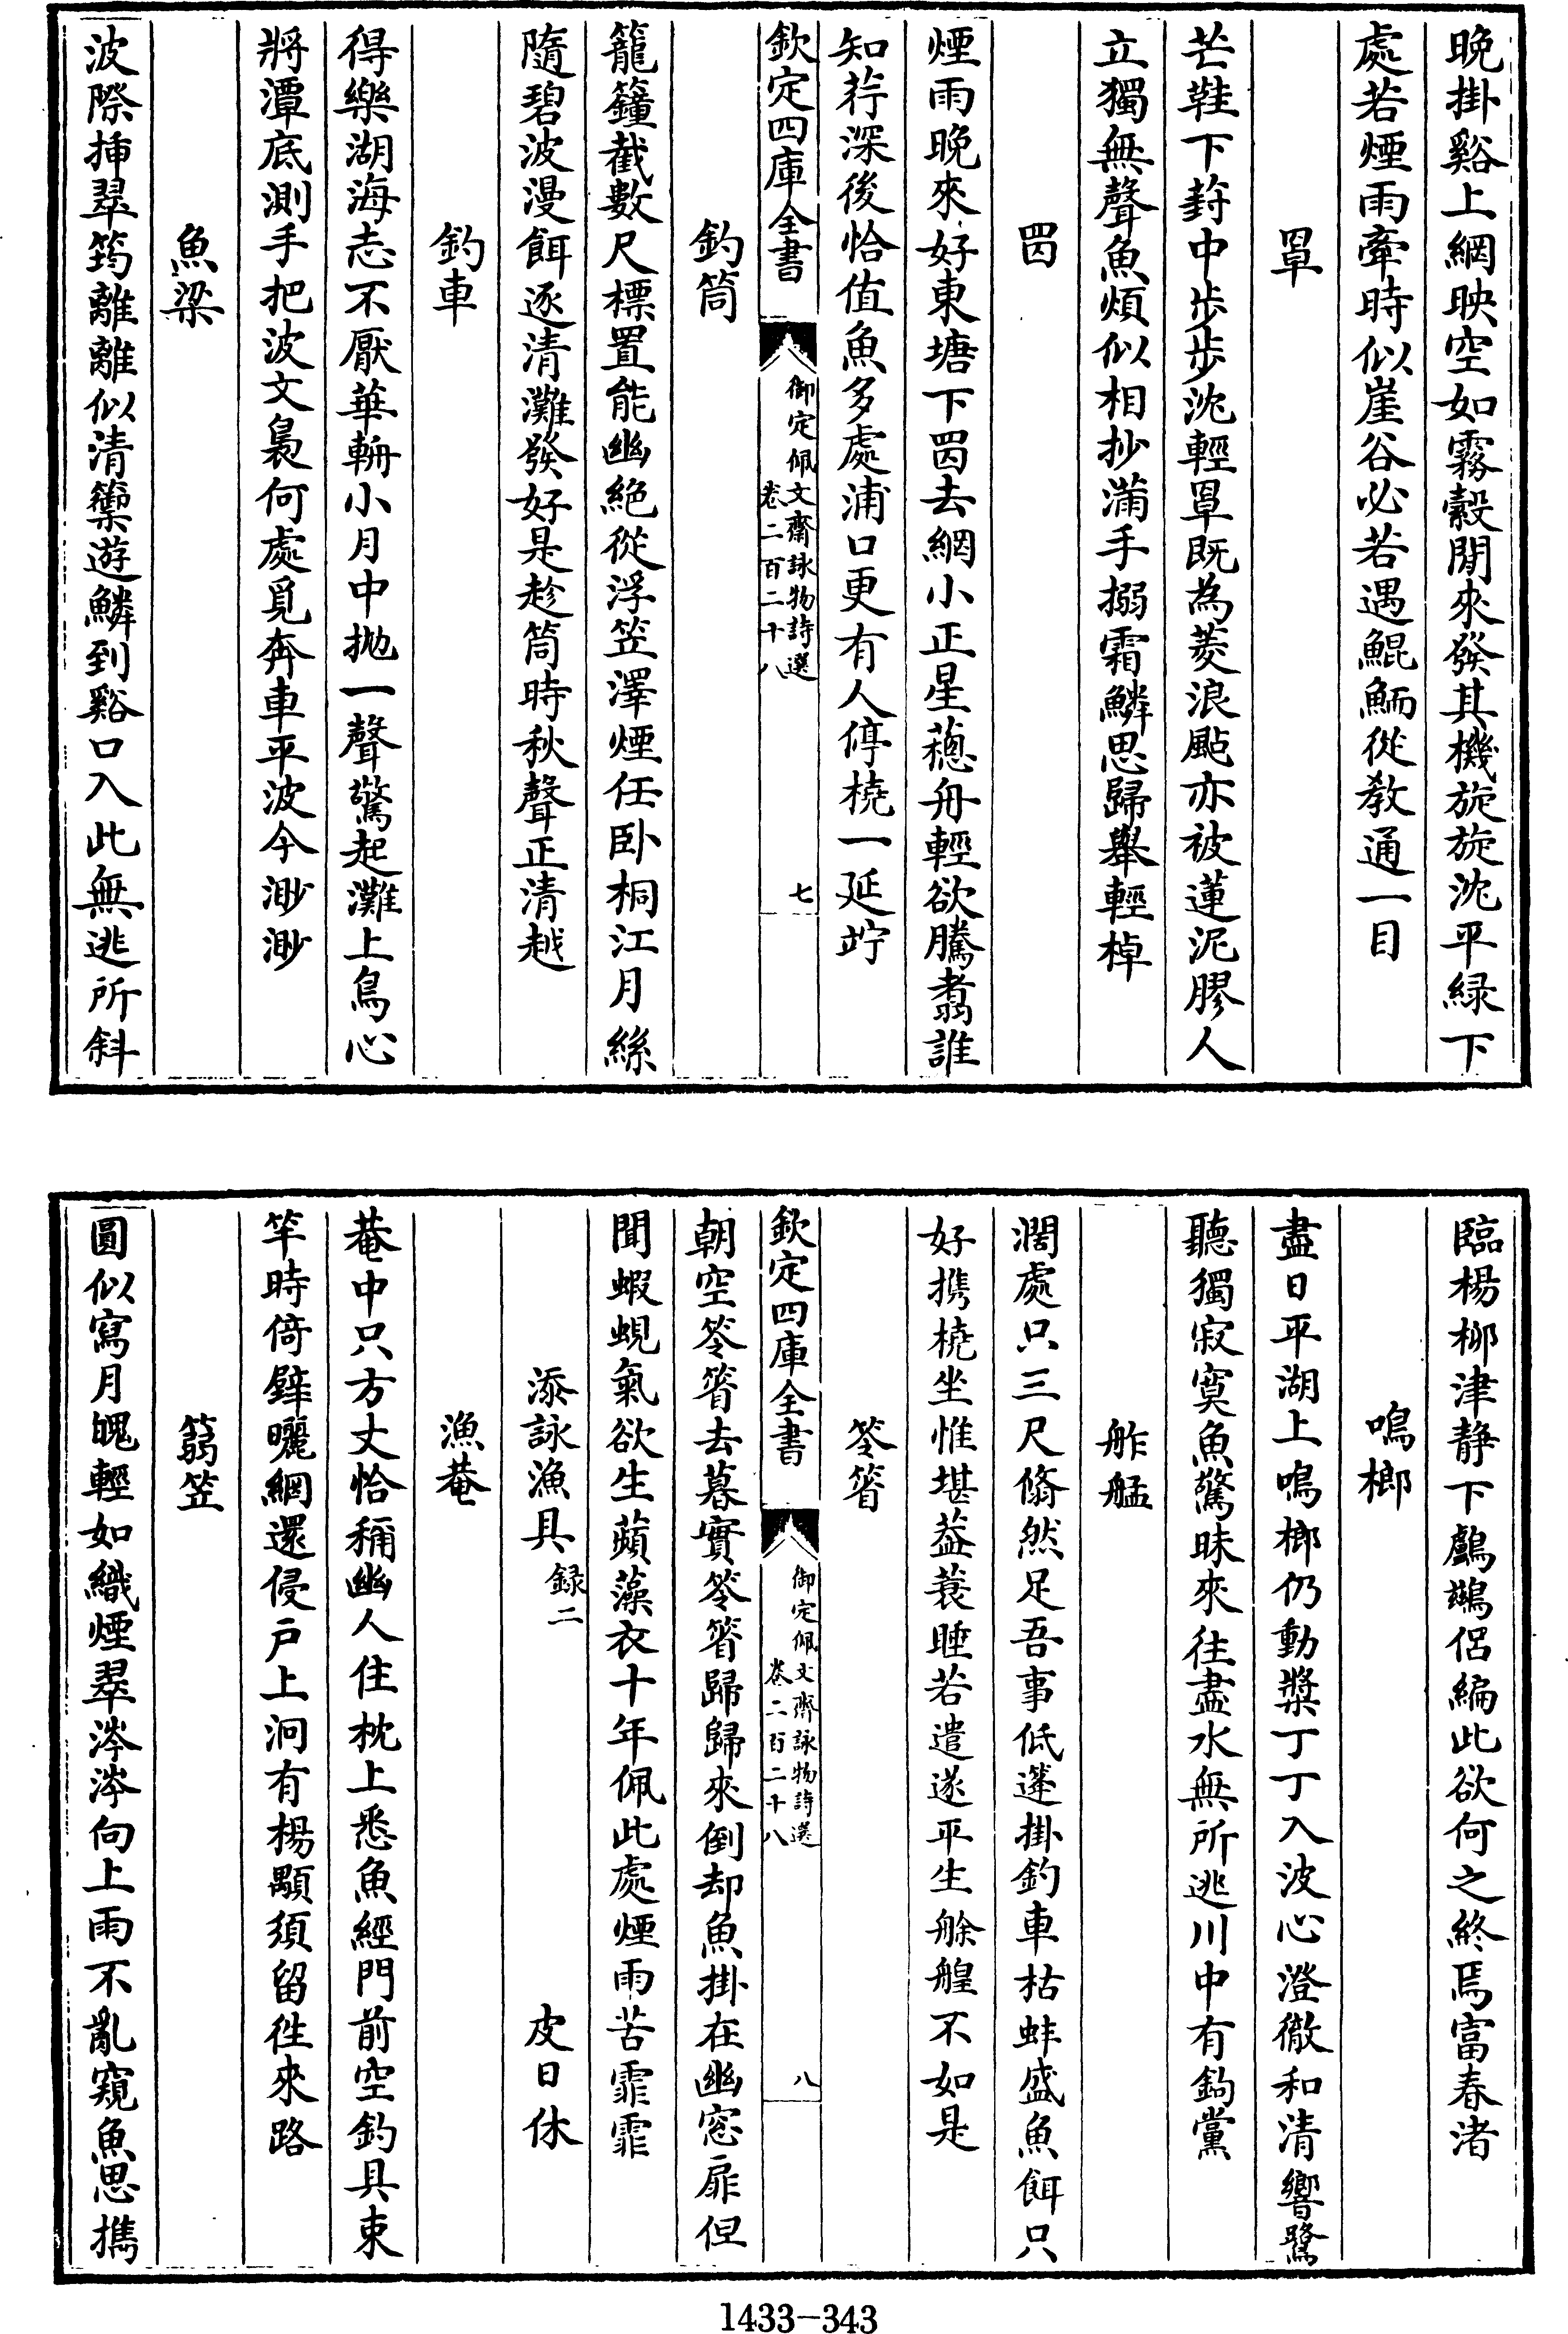 晚掛谿上網映空如霧縠閒來發其機旋旋沈平緑下
處若煙雨牽時似崖谷必若遇鯤鮞從教通一目
罩
芒鞋下葑中步步沈輕罩既為菱浪颭亦被蓮泥膠人
立獨無聲魚煩似相抄滿手搦霜鱗思歸舉輕棹
䍏
煙雨晚來好東塘下䍏去網小正星䕺舟輕欲騰翥誰
知荇深後恰值魚多處浦口更有人停橈一延竚
欽定四庫全書
御定佩文齋詠物詩選
卷二百二十八
七
釣筒
籠籦截數尺標置能幽絶從浮笠澤煙任卧桐江月絲
隨碧波漫餌逐清灘發好是趁筒時秋聲正清越
釣車
得樂湖海志不厭華輈小月中拋一聲驚起灘上鳥心
將潭底測手把波文裊何處覓奔車平波今渺渺
魚梁
波際揷翠筠離離似清籞遊鱗到谿口入此無逃所斜
臨楊柳津静下鸕鷀侶編此欲何之終焉富春渚
鳴榔
盡日平湖上鳴榔仍動槳丁丁入波心澄徹和清響鷺
聽獨寂寞魚驚昧來往盡水無所逃川中有鉤黨
舴艋
濶處只三尺翛然足吾事低篷掛釣車枯蚌盛魚餌只
好携橈坐惟堪葢蓑睡若遣遂平生艅艎不如是
笭箵
欽定四庫全書
御定佩文齋詠物詩選
卷二百二十八
八
朝空笭箵去暮實笭箵歸歸來倒却魚掛在幽窓扉但
聞蝦蜆氣欲生蘋藻衣十年佩此處煙雨苦霏霏
添詠漁具 録二 皮日休
漁菴
菴中只方丈恰稱幽人住枕上悉魚經門前空釣具束
竿時倚壁曬網還侵戶上泂有楊顒須留徃來路
篛笠
圓似寫月魄輕如織煙翠涔涔向上雨不亂窺魚思擕
1433-343